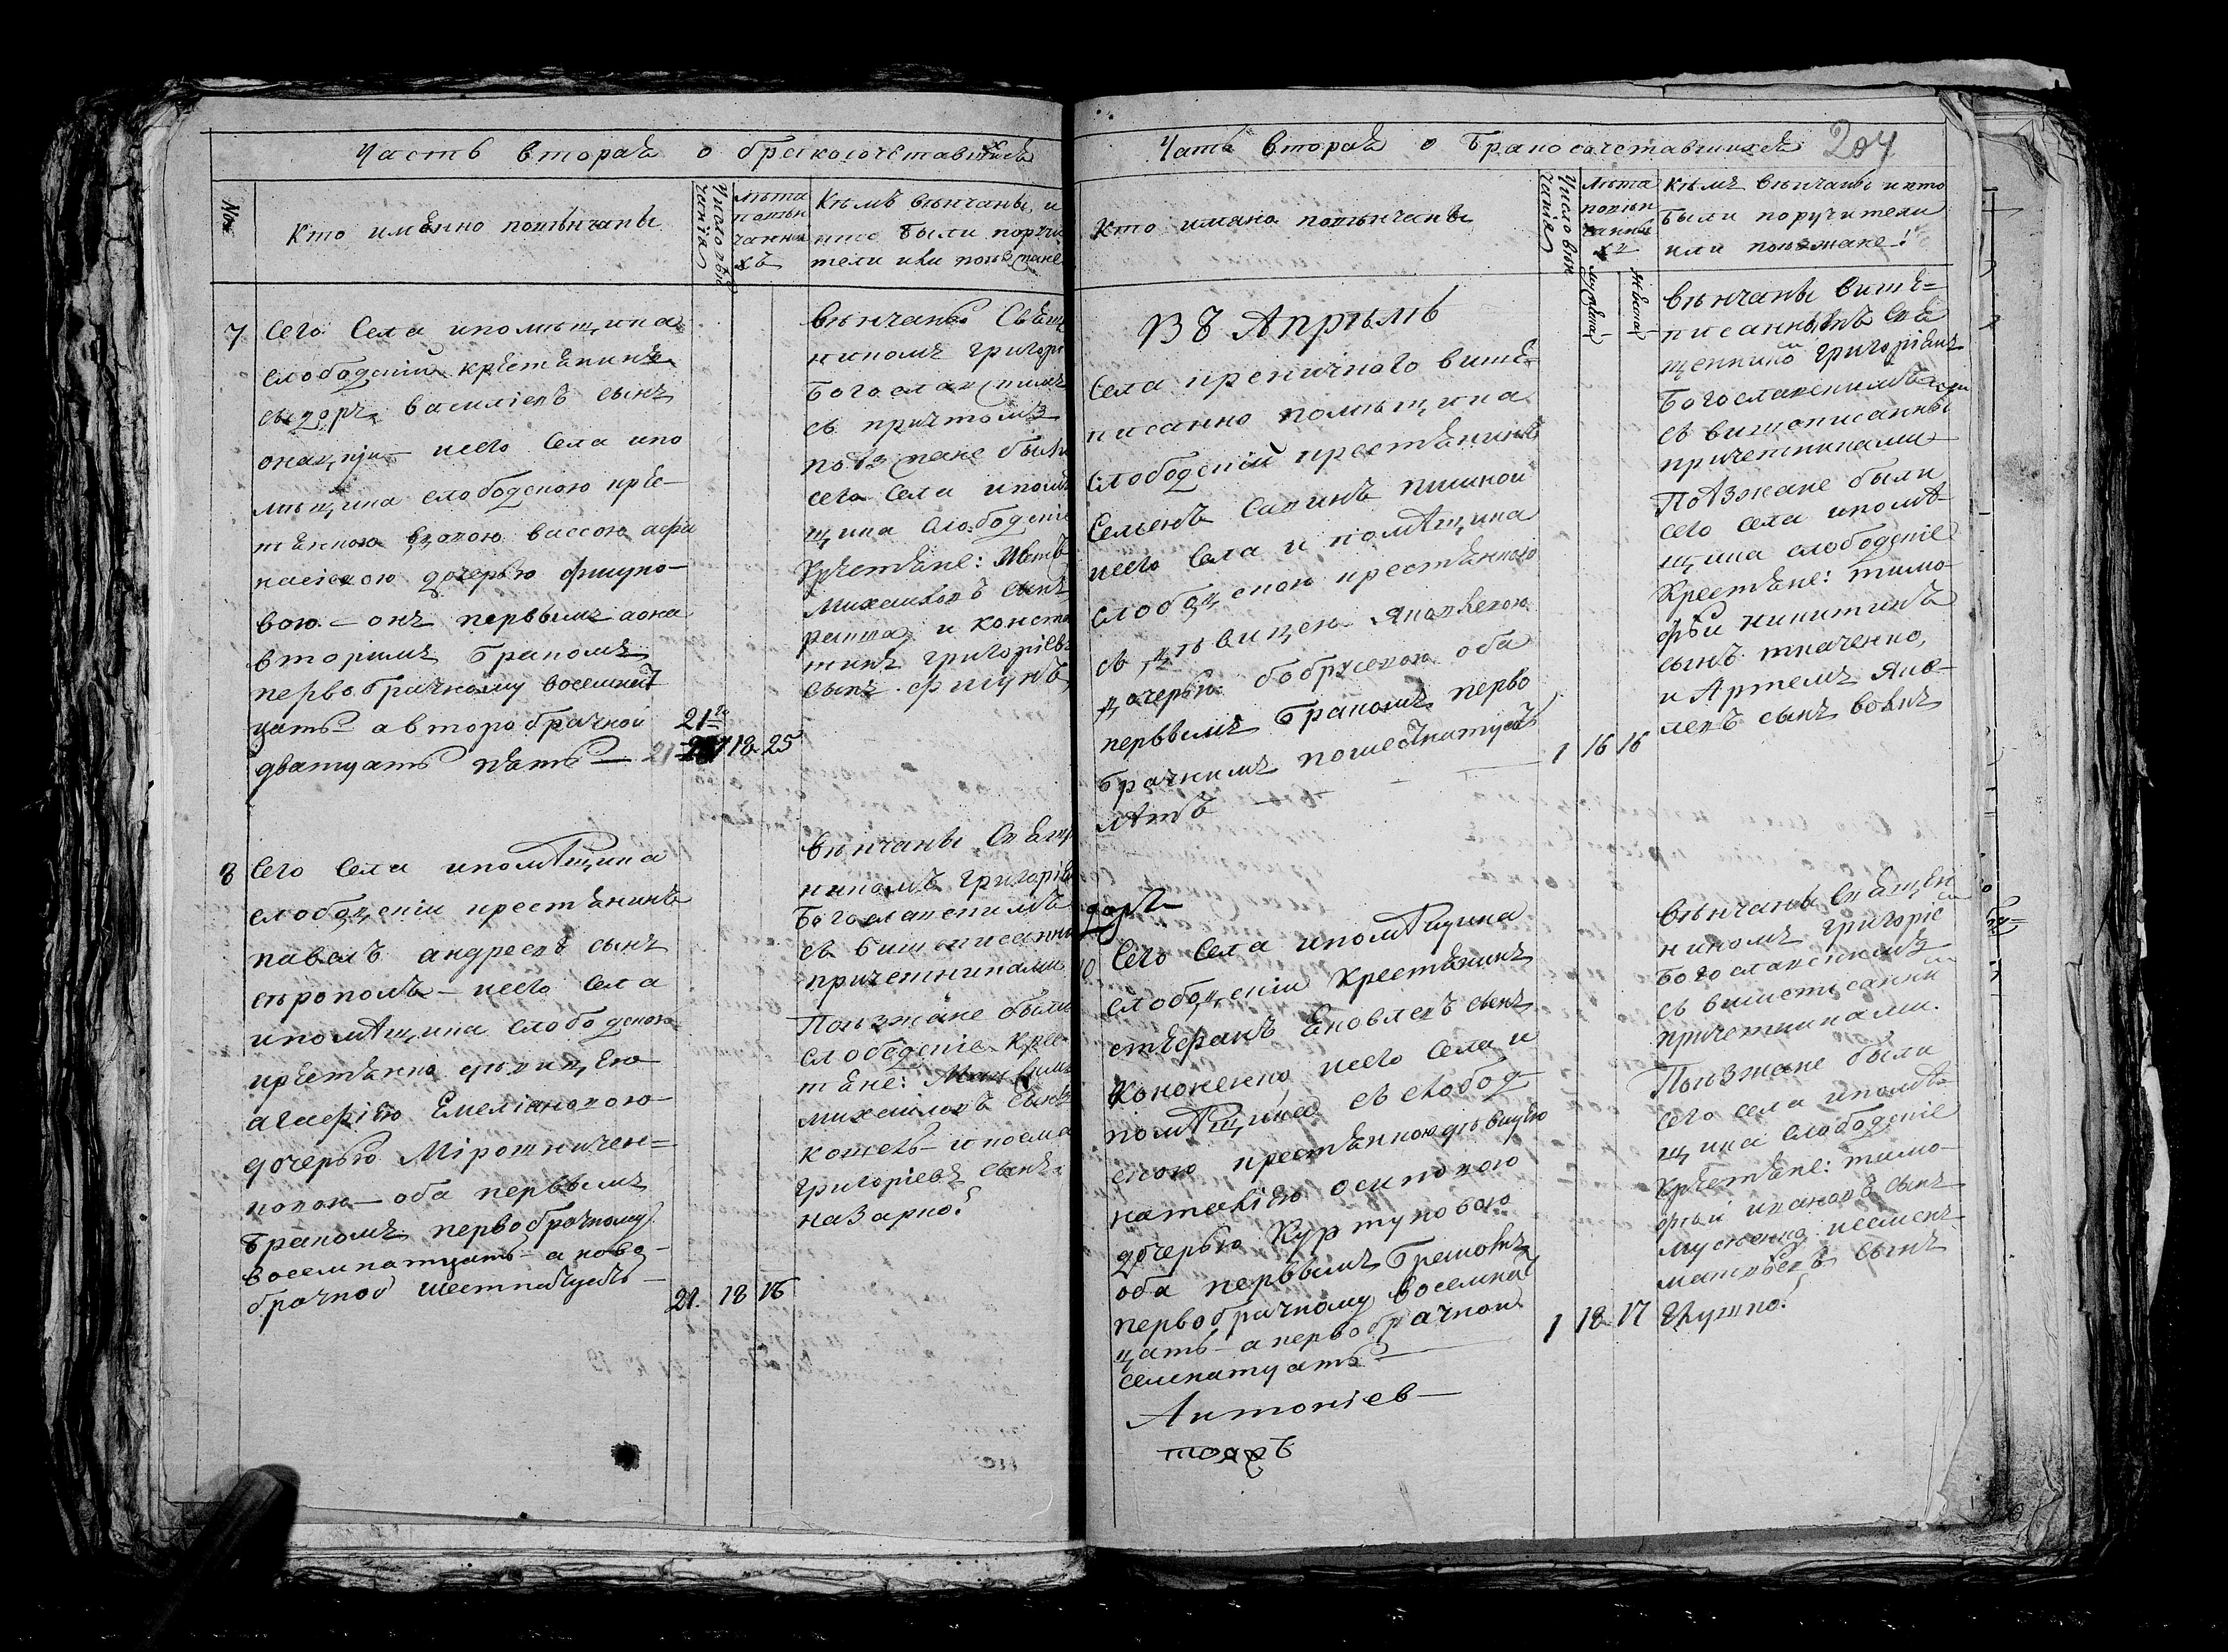 Часть вторая о бракосочетавшихся
№
Кто имѣнно повѣнчаны
Число вѣн
чанія
лѣта
повѣн
чанны
хъ
Кѣмъ вѣнчаны, и
кто были поручи
тели или поѣзжане
7
Сего Села и помѣщика
слободскій крестянинъ
сыдоръ василіевъ сынъ
и сего Села и по
мѣщика слободскою крес-
тянкою вдовою вассою афа
насіевою дочерью
вою - онъ первымъ а она
вторимъ бракомъ
первобрачному восемнат
цать а второбрачной
дватцать пять
21го
21
18 25
вѣнчаны Свящ
никомъ григорі
Богославскимъ
съ причтомъ
поѣзжане были
сего Села и помѣ
щика слободскіе
крестяне:
михаиловъ сынъ
и конста
тинъ григоріевъ
сынъ
8
Сего Села и помѣщика
слободскіи крестянинъ
павелъ андреевъ сынъ
и сего Села
и помѣщика слободскою
крестянкою дѣвицею
агафіею Емеліановою
дочерью Мірошничен=
ковою - оба первымъ
бракомъ первобрачному
восемнатцать а ново-
брачной шестнатцать
21. 18 16
вѣнчаны Свящ
никомъ григоріе
Богославскимъ
съ вишеписанни
причетниками
Поѣзжане были
слободскіе крес
тяне:
михаиловъ сынъ
и козма
григоріевъ сынъ
назарко
Часть вторая о Бракосочетавшихся
204
Кто имяно повѣнчаны
Число вѣн
чанія
Лѣта
повѣн
чанны
хъ
мужска
женска
Кѣмъ вѣнчаны и кто
были поручители
или поѣзжане
Въ Апрѣлѣ
Села више
писанно помѣщика
слободскій крестянинъ
Семенъ Савинъ
и сего Села и помѣщика
слободскою крестянкою
съ дѣвицею Яковлевою
дочерью оба
первымъ бракомъ перво
брачнимъ по шеснатцать
лѣтъ
1 16 16
вѣнчаны вишѣ=
писаннымъ Свя
щенникомъ григоріемъ
Богославскимъ
съ вишописанны
причетниками
Поѣзжане были
сего села и помѣ
щика слободскіе
крестяне: тимо
фѣй никитинъ
сынъ ткаченко,
и Артемъ Яков
левъ сынъ вовкъ
10
Сего Села и помѣщика
слободскіи крестянинъ
стефанъ Яковлевъ сынъ
кононенко и сего Села и
помѣщика съ слобод
скою крестянкою дѣвицею
наталіею осиповою
дочерью Куртуковою
оба первымъ бракомъ
первобрачному восемна
цать а первобрачной
семнатцать
1 18 17
Антоніев
вѣнчаны Священ
никомъ григоріе
Богославскимъ
съ вишеписанни
причетниками.
Поѣзжане были
сего села и помѣ
щика слободскіе
крестяне: тимо-
фѣй ивановъ сынъ
и семенъ
матвѣевъ сынъ